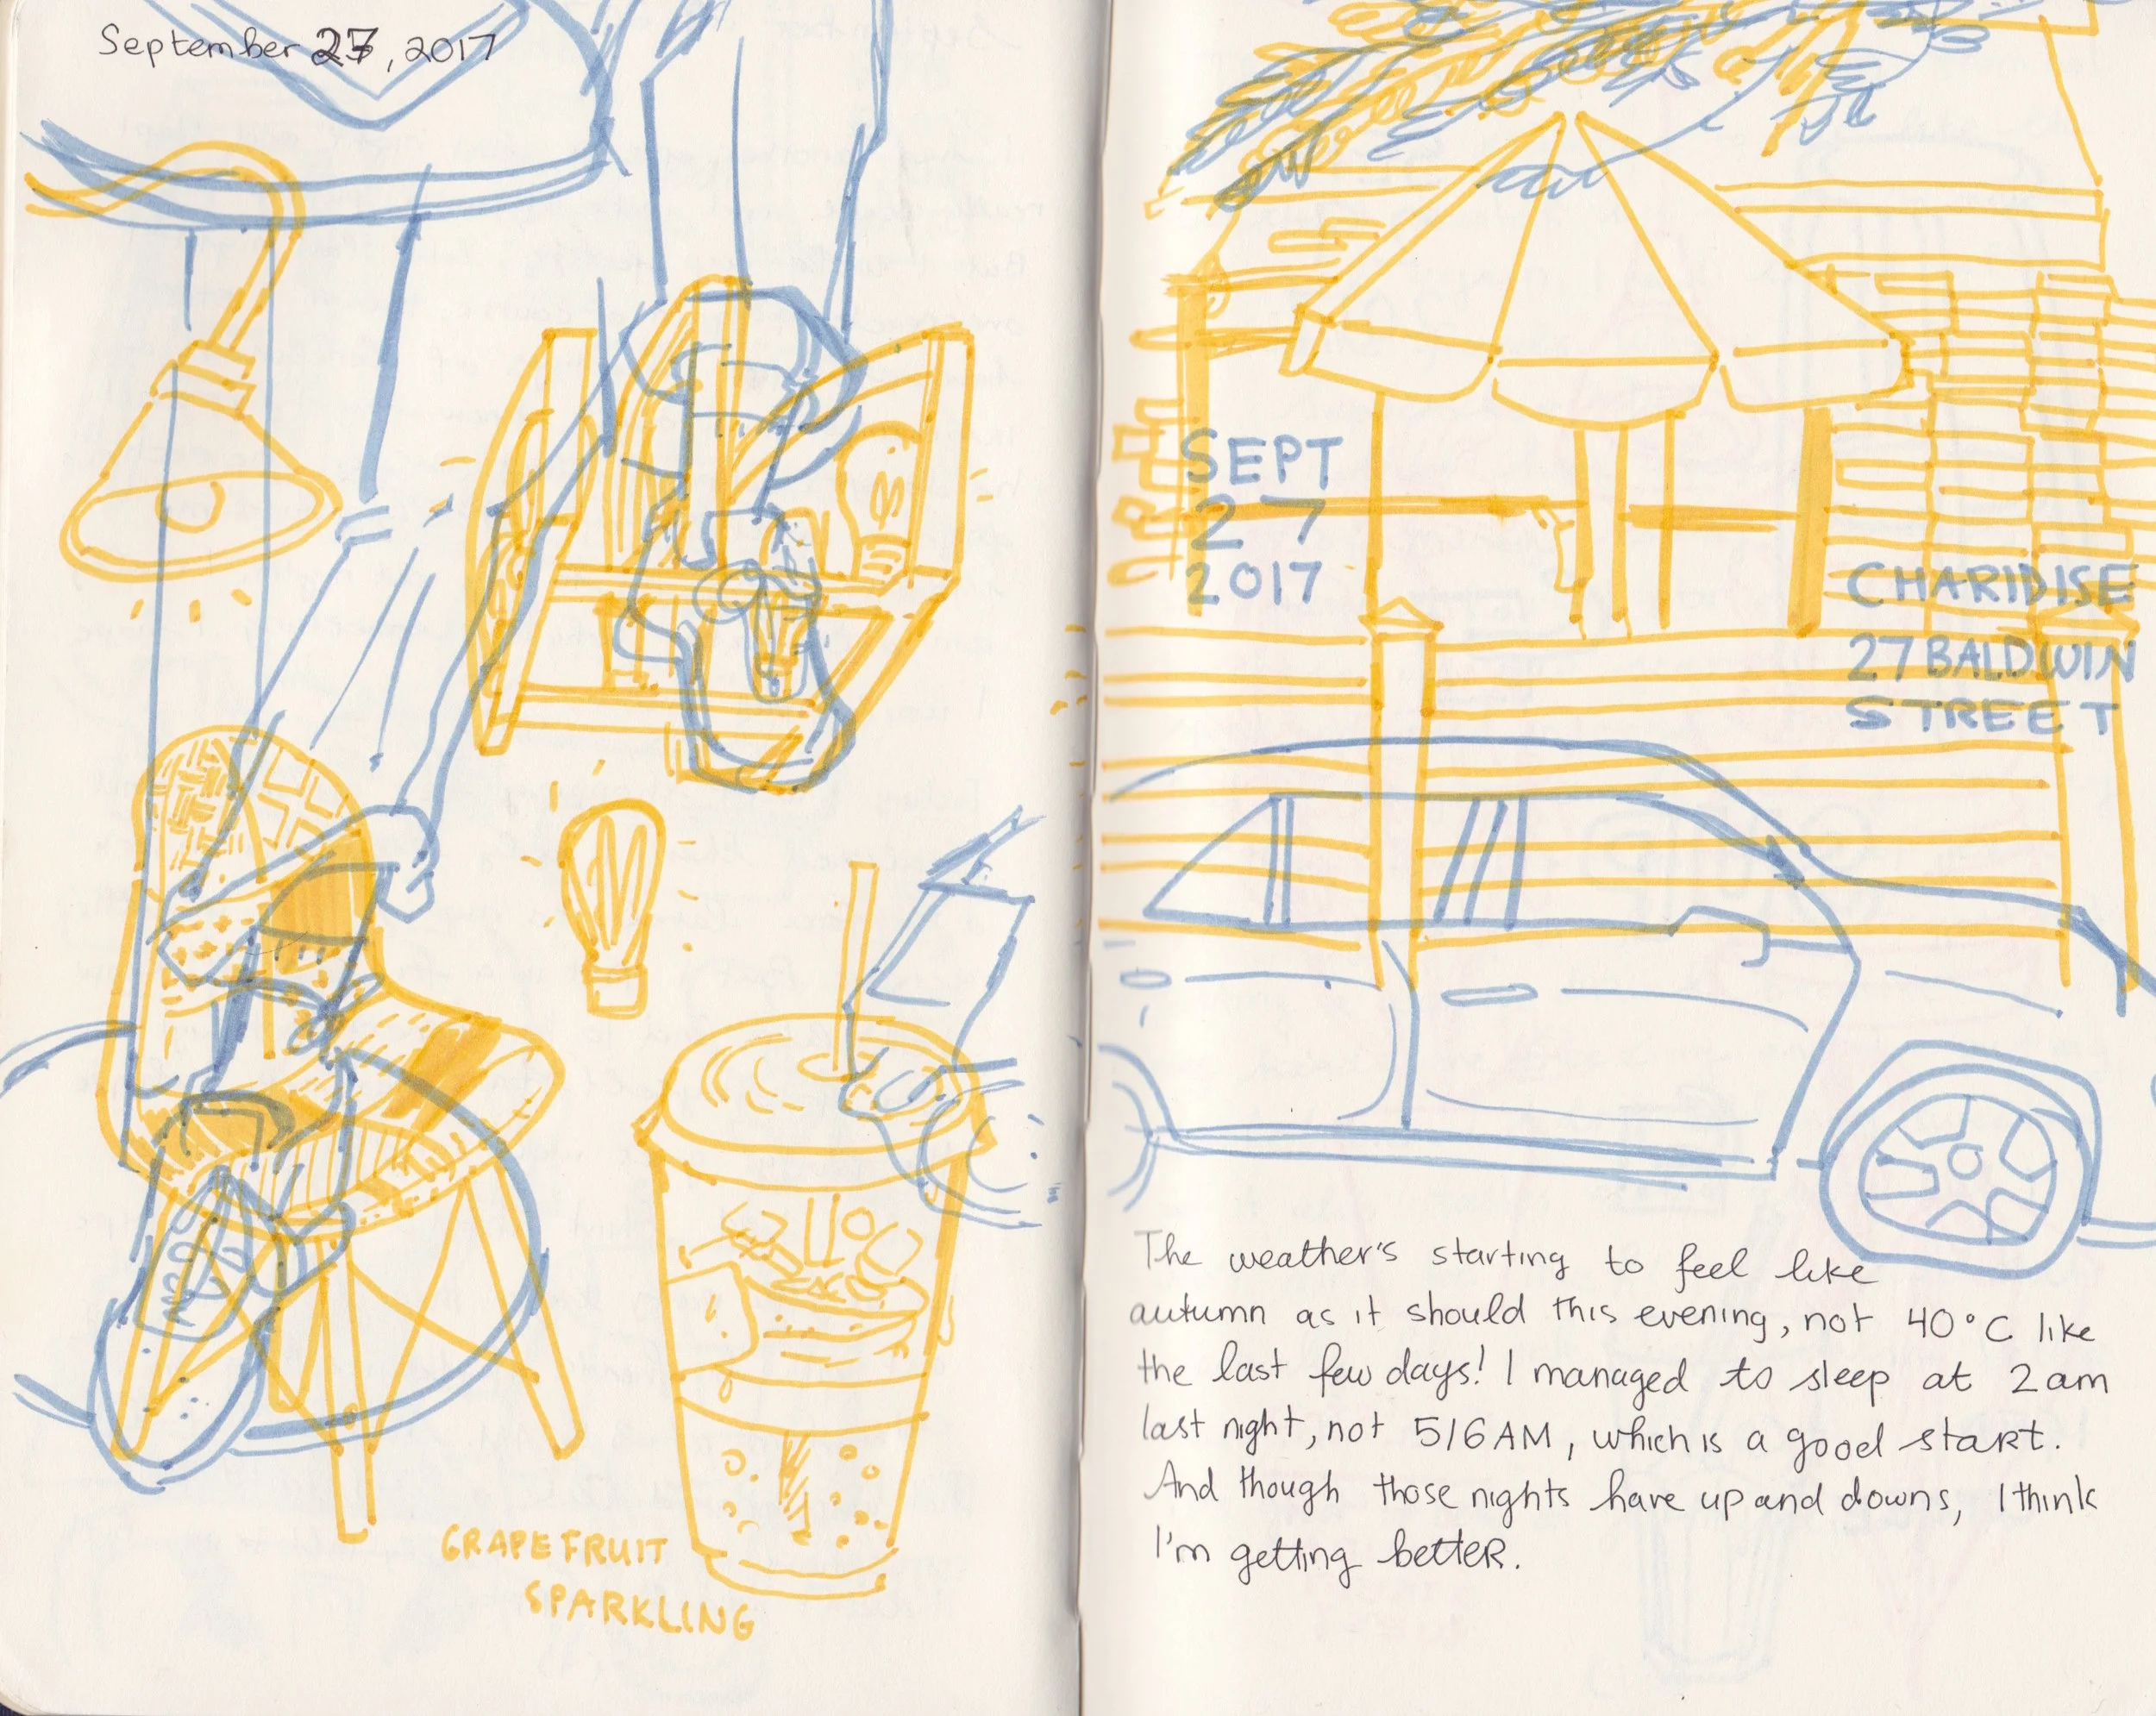 September 27, 2017
GRAPEFRUIT
SPARKLING
SEPT
27
2017
CHARIDISE
27 BALDWIN
STREET
The weather's starting to feel like
autumn as it should this evening, not 40°C like
the last few days! I managed to sleep at 2am
last night, not 5/6AM, which is a good start.
And though those nights have up and downs, I think
I'm getting better.